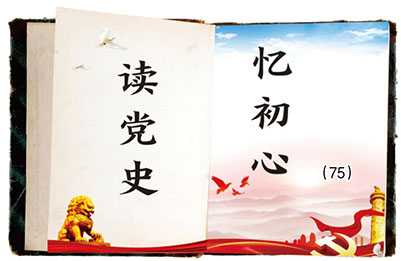 读党史
忆初心
(75)